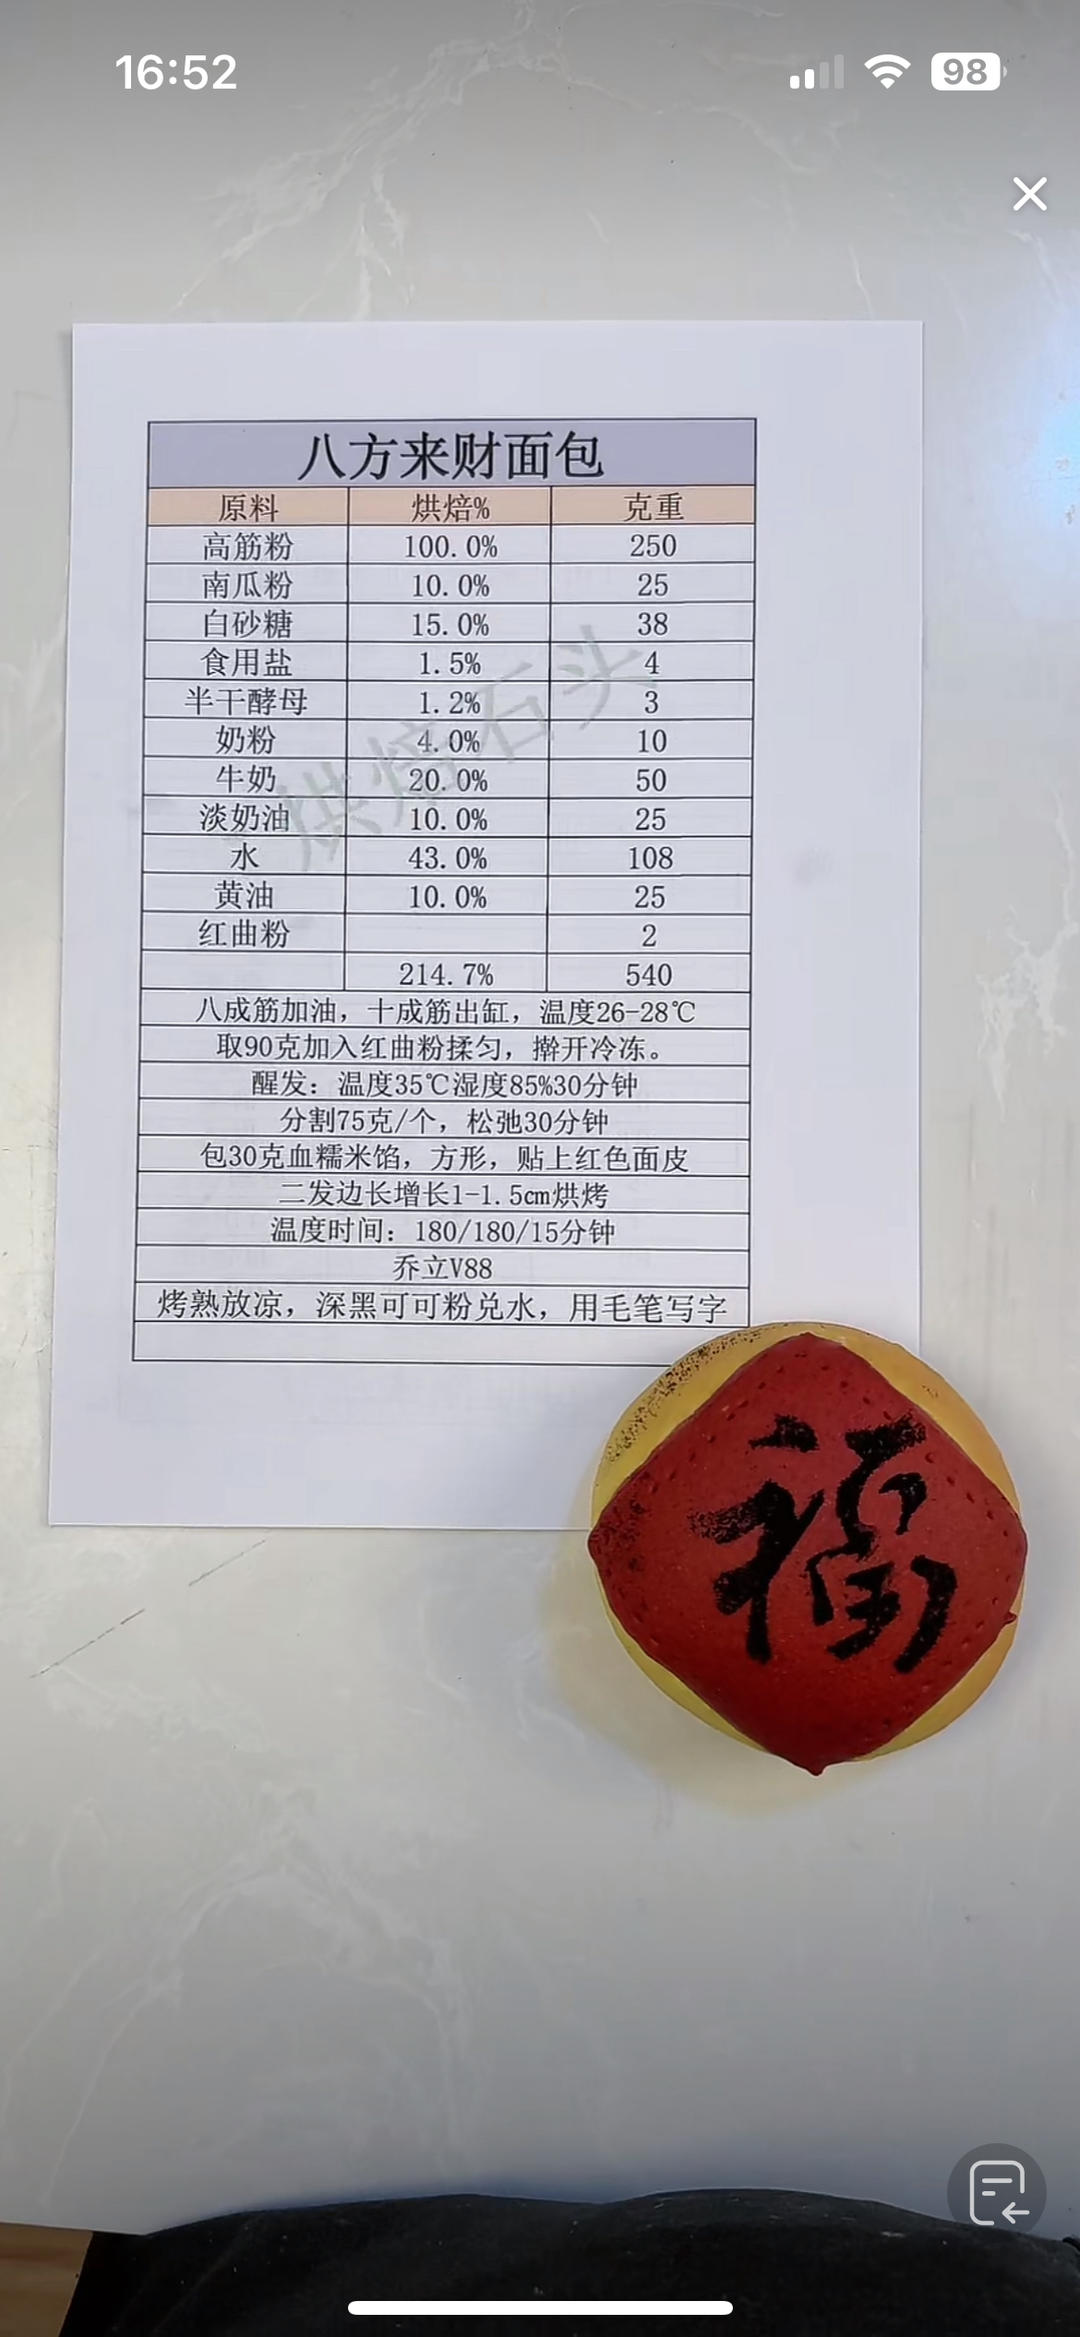 16:52
98
八方来财面包
原料 烘焙% 克重
高筋粉 100.0% 250
南瓜粉 10.0% 25
白砂糖 15.0% 38
食用盐 1.5% 4
半干酵母 1.2% 3
奶粉 4.0% 10
牛奶 20.0% 50
淡奶油 10.0% 25
水 43.0% 108
黄油 10.0% 25
红曲粉 2
214.7% 540
八成筋加油，十成筋出缸，温度26-28℃
取90克加入红曲粉揉匀，擀开冷冻。
醒发：温度35℃湿度85%30分钟
分割75克/个，松弛30分钟
包30克血糯米馅，方形，贴上红色面皮
二发边长增长1-1.5cm烘烤
温度时间：180/180/15分钟
乔立V88
烤熟放凉，深黑可可粉兑水，用毛笔写字
烘焙石头
福